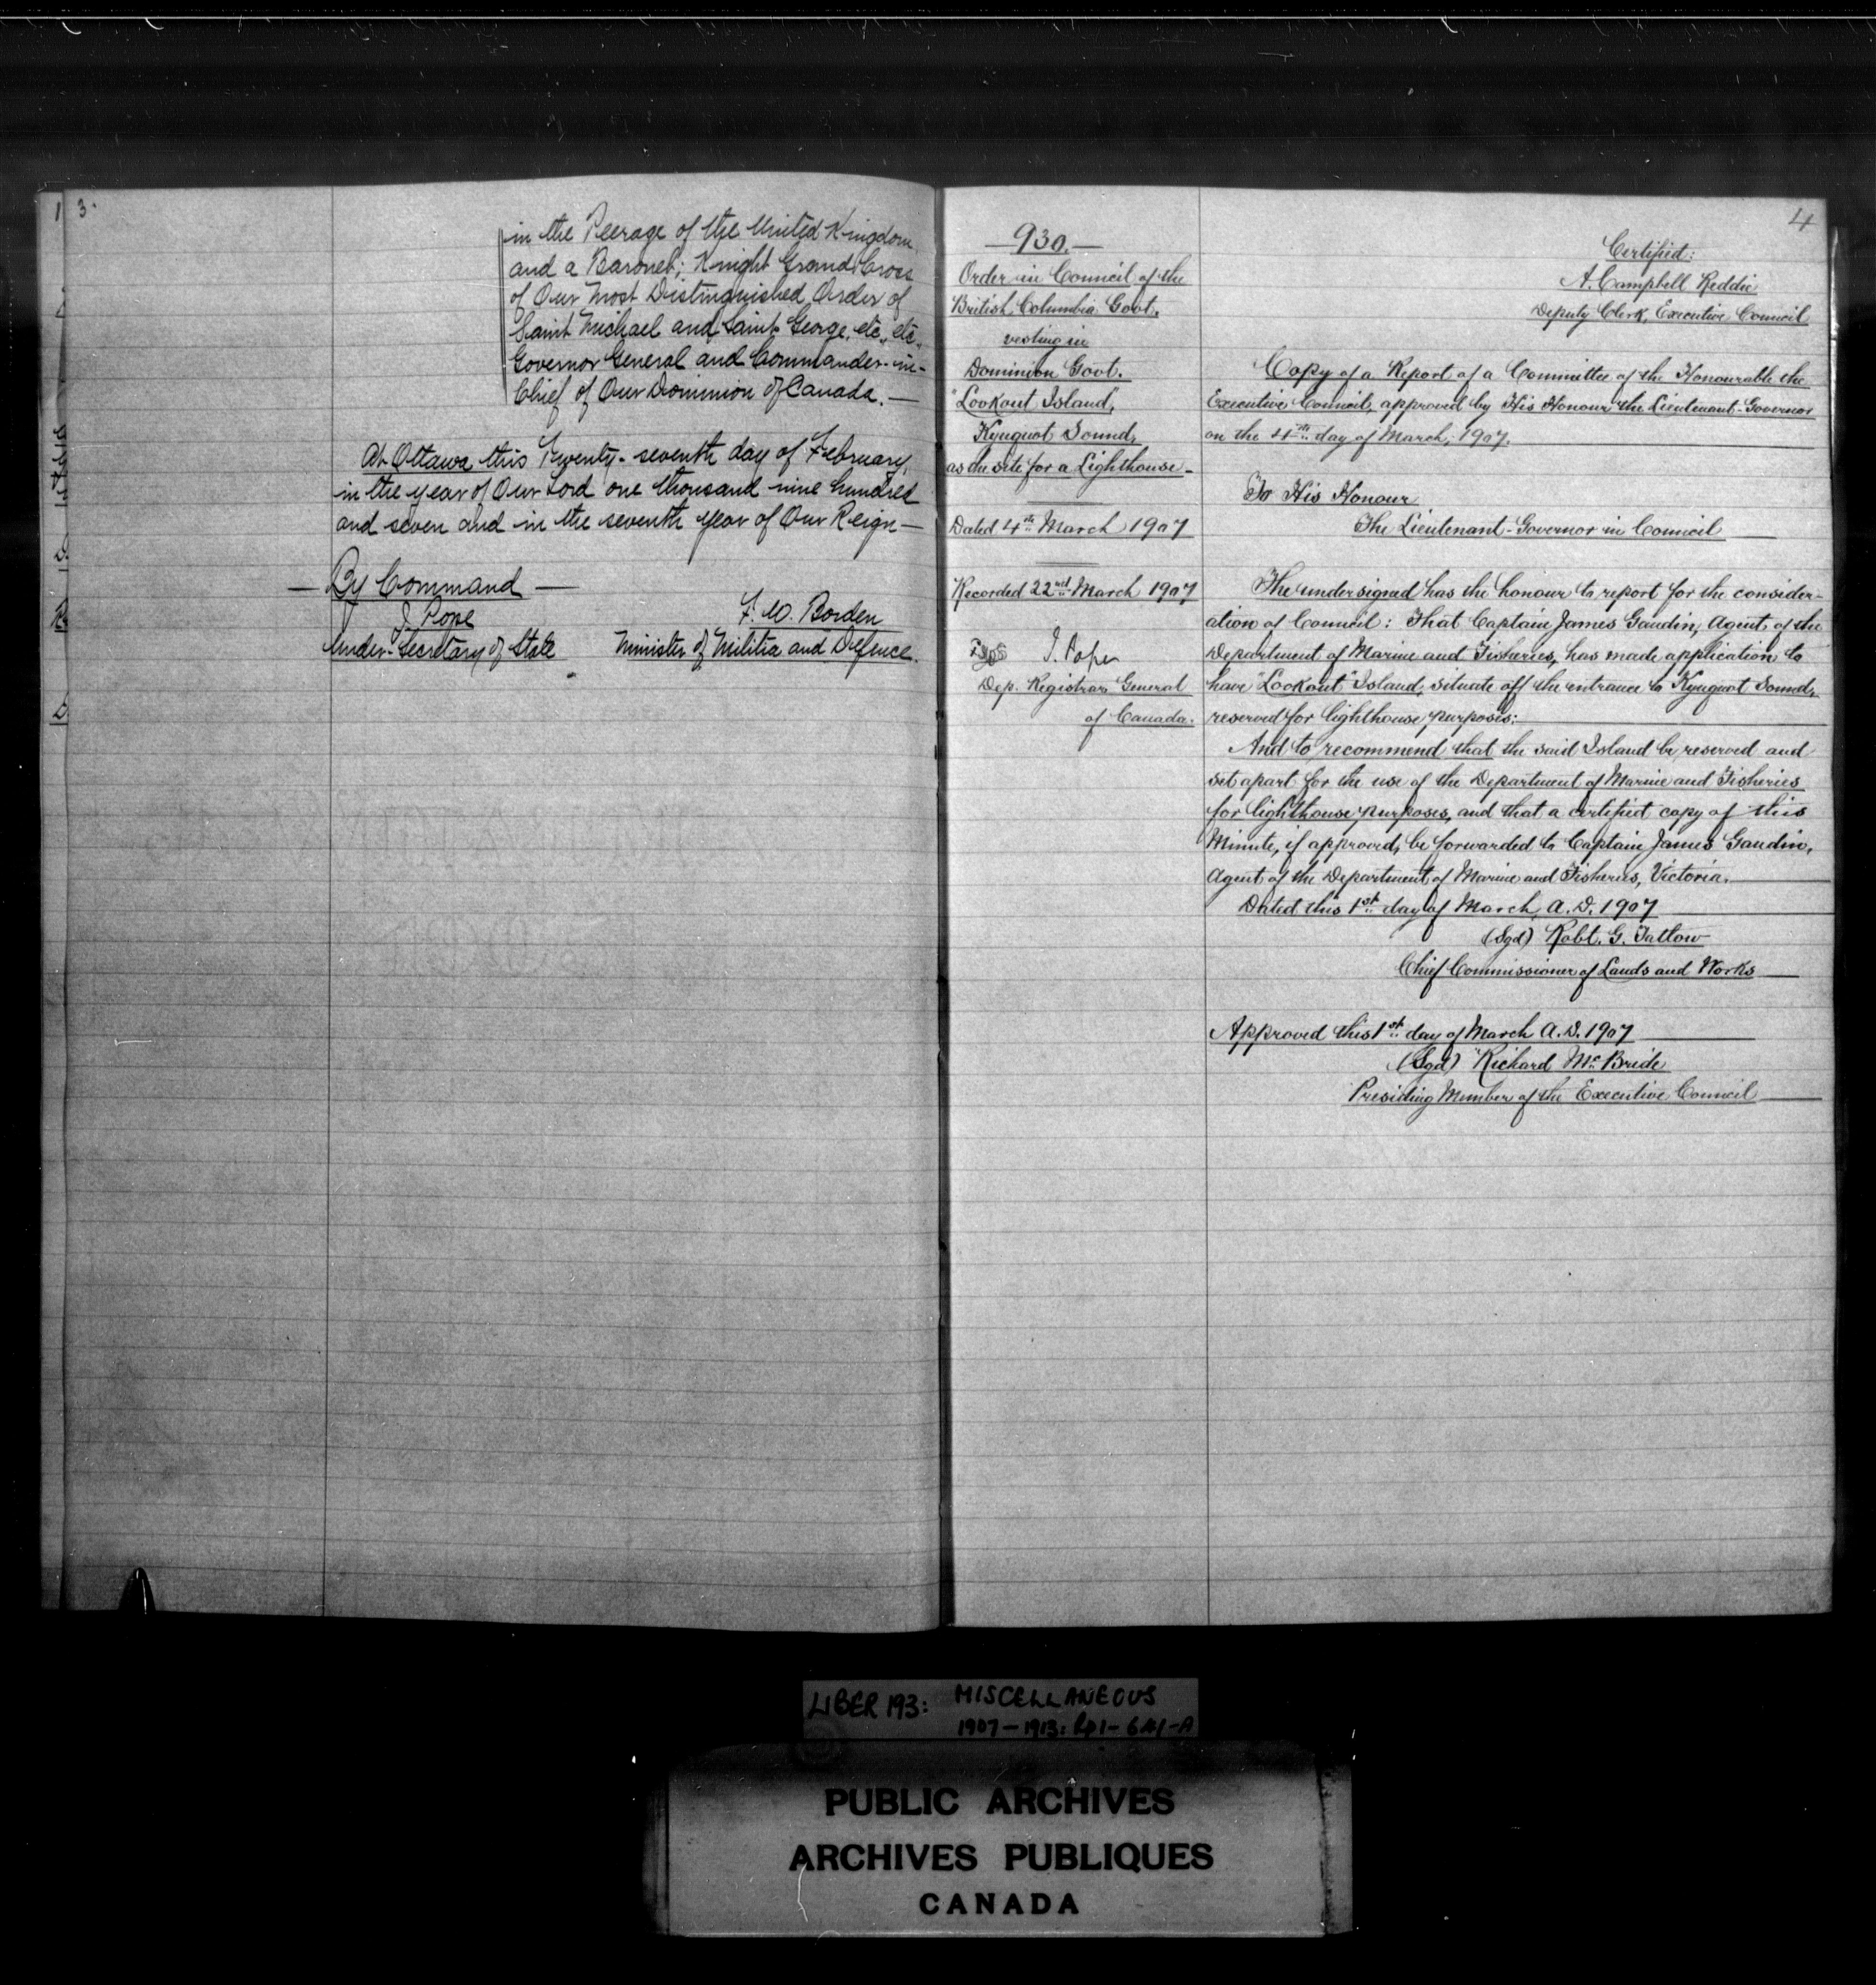 3.
in the Peerage of the United Kingdom
and a Baronet; Knight Grand Cross
of Our Most Distinguished Order of
Saint Michael and Saint George, etc., etc.,
Governor General and Commander-in-
Chief of Our Dominion of Canada. —
At Ottawa this Twenty-seventh day of February,
in the year of Our Lord one thousand nine hundred
and seven and in the seventh year of Our Reign —
— By Command —
J. Pope
Under-Secretary of State
F. W. Borden
Minister of Militia and Defence.
—930.—
Order in Council of the
British Columbia Govt.
vesting in
Dominion Govt.
"Lookout Island,
Kyuquot Sound,
as the site for a Lighthouse-
Dated 4th March 1907
Recorded 22nd March 1907
J. Pope
Dep. Registrar General
of Canada.
4
Certified:
A. Campbell Reddie
Deputy Clerk, Executive Council
Copy of a Report of a Committee of the Honourable the
Executive Council, approved by His Honour the Lieutenant-Governor
on the 4th day of March, 1907.
To His Honour
The Lieutenant-Governor in Council
The undersigned has the honour to report for the consider-
ation of Council: That Captain James Gaudin, Agent of the
Department of Marine and Fisheries, has made application to
have "Lookout" Island, situate off the entrance to Kyuquot Sound,
reserved for lighthouse purposes:
And to recommend that the said Island be reserved and
set apart for the use of the Department of Marine and Fisheries
for lighthouse purposes, and that a certified copy of this
Minute, if approved, be forwarded to Captain James Gaudin,
Agent of the Department of Marine and Fisheries, Victoria.
Dated this 1st day of March, A.D. 1907
(Sgd) Robt. G. Tatlow
Chief Commissioner of Lands and Works
Approved this 1st day of March A.D. 1907
(Sgd) "Richard McBride
Presiding Member of the Executive Council
LIBER 193: MISCELLANEOUS
1907-1913: pp1-641-A
PUBLIC ARCHIVES
ARCHIVES PUBLIQUES
CANADA